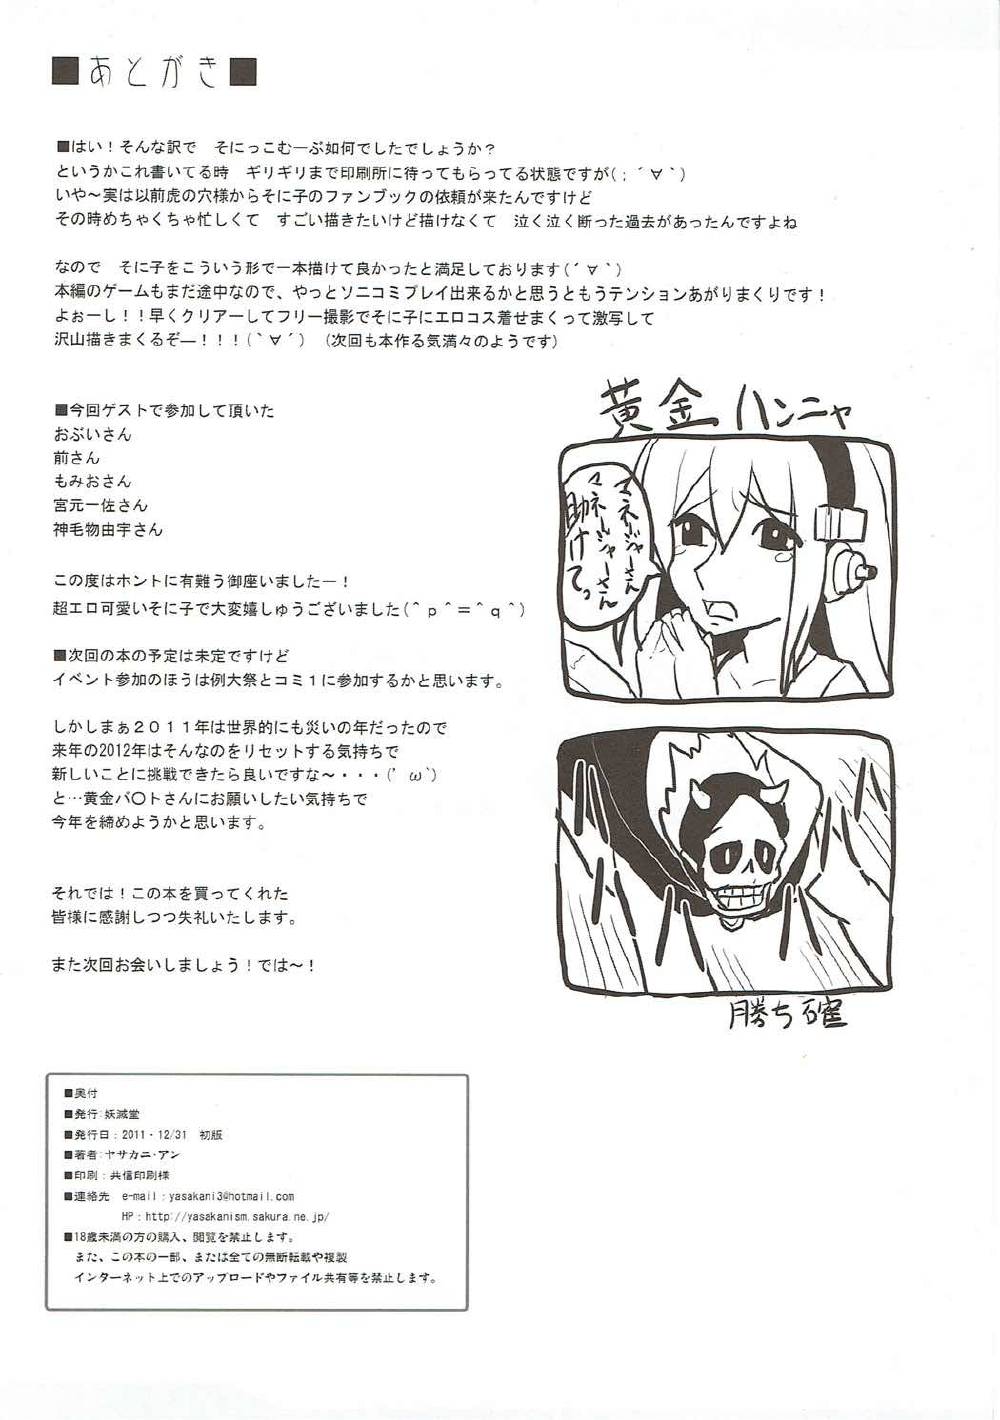 ■あとがき■
■はい！そんな訳で　そにっこむーぶ如何でしたでしょうか？
というかこれ書いてる時　ギリギリまで印刷所に待ってもらってる状態ですが(；´∀｀)
いや～実は以前虎の穴様からそに子のファンブックの依頼が来たんですけど
その時めちゃくちゃ忙しくて　すごい描きたいけど描けなくて　泣く泣く断った過去があったんですよね
なので　そに子をこういう形で一本描けて良かったと満足しております(´∀｀)
本編のゲームもまだ途中なので、やっとソニコミプレイ出来るかと思うともうテンションあがりまくりです！
よぉーし！！早くクリアーしてフリー撮影でそに子にエロコス着せまくって激写して
沢山描きまくるぞ―！！！(｀∀´)　(次回も本作る気満々のようです)
■今回ゲストで参加して頂いた
おぶいさん
前さん
もみおさん
宮元一佐さん
神毛物由宇さん
この度はホントに有難う御座いました―！
超エロ可愛いそに子で大変嬉しゅうございました(＾ｐ＾＝＾ｑ＾)
■次回の本の予定は未定ですけど
イベント参加のほうは例大祭とコミ１に参加するかと思います。
しかしまぁ２０１１年は世界的にも災いの年だったので
来年の2012年はそんなのをリセットする気持ちで
新しいことに挑戦できたら良いですな～・・・(’ω｀)
と…黄金バ〇トさんにお願いしたい気持ちで
今年を締めようかと思います。
それでは！この本を買ってくれた
皆様に感謝しつつ失礼いたします。
また次回お会いしましょう！では～！
黄金ハンニャ
マネージャーさん
マネージャーさん
助けてっ
勝ち確
■奥付
■発行：妖滅堂
■発行日：2011・12/31　初版
■著者：ヤサカニ・アン
■印刷：共信印刷様
■連絡先　e-mail：yasakani3@hotmail.com
HP：http://yasakanism.sakura.ne.jp/
■18歳未満の方の購入、閲覧を禁止します。
また、この本の一部、または全ての無断転載や複製
インターネット上でのアップロードやファイル共有等を禁止します。